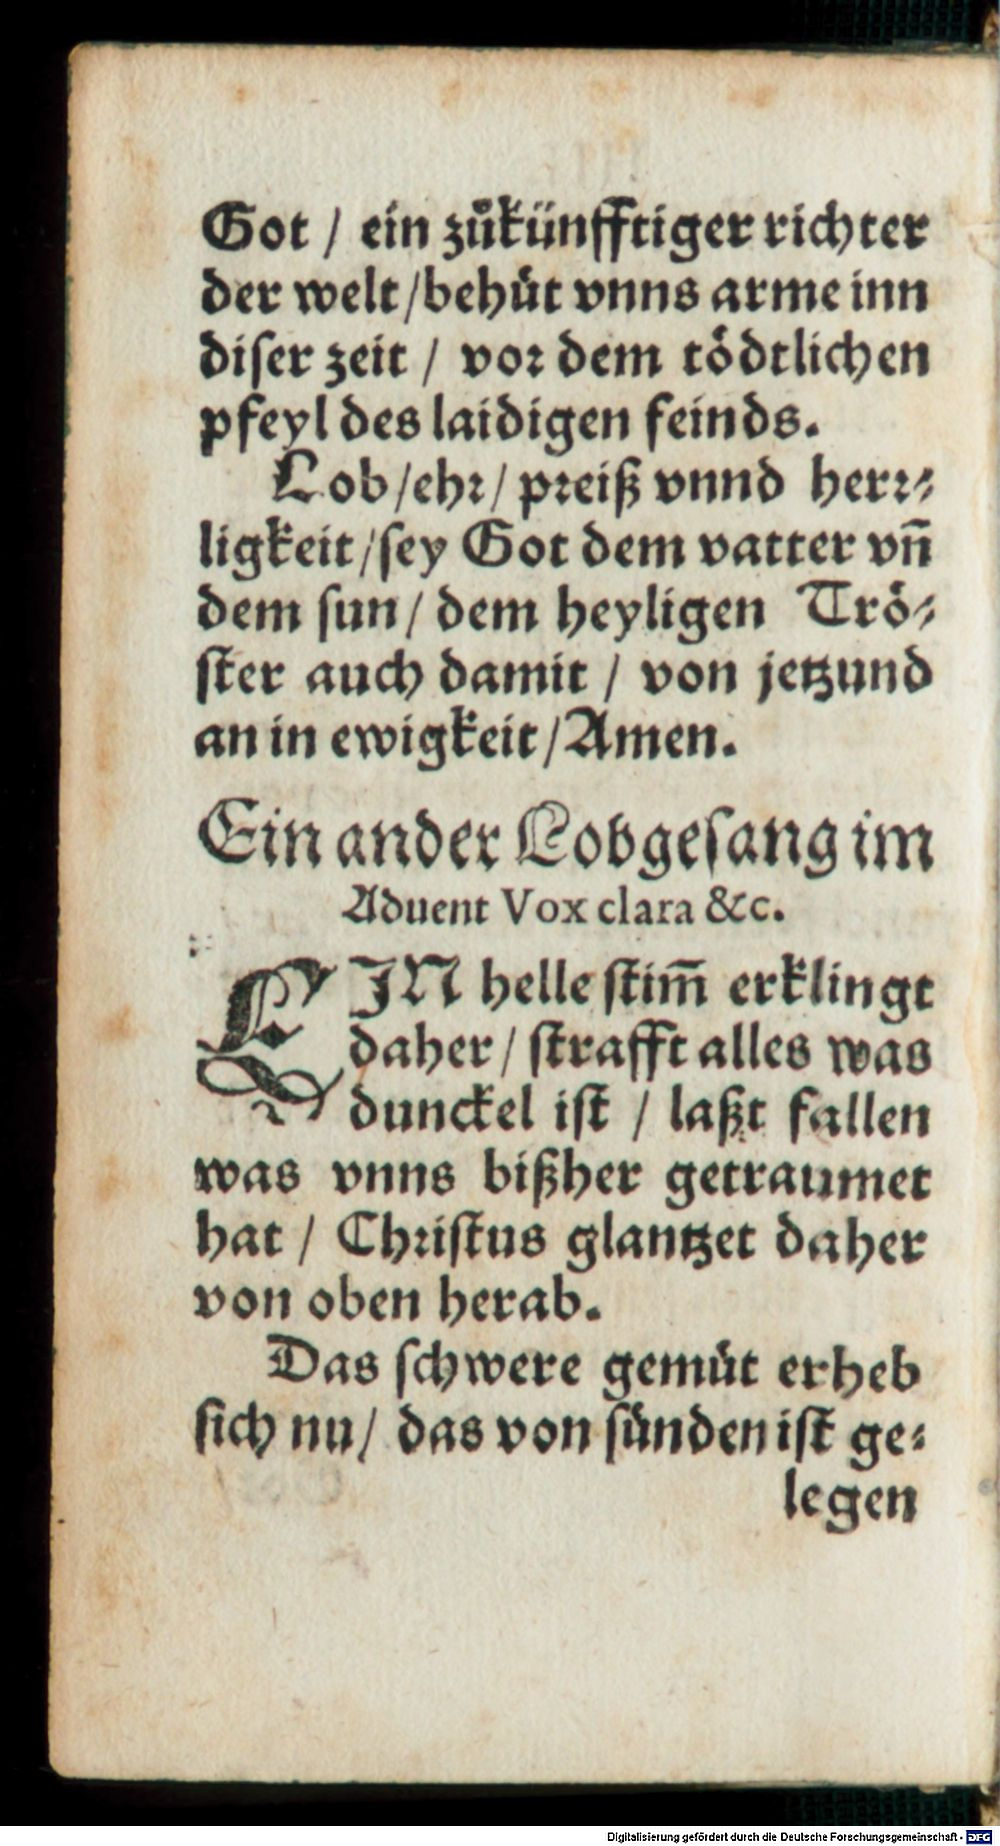 Got / ein zuͦkünfftiger richter
der welt /behuͤt vnns arme inn
diser zeit / vor dem toͤdtlichen
pfeyl des laidigen feinds.
Lob /ehr/ preiß vnnd herr⸗
ligkeit/sey Got dem vatter vñ
dem sun/ dem heyligen Troͤ⸗
ster auch damit / von jetzund
an in ewigkeit /Amen.
Ein ander Lobgesang im
Aduent Vox clara &c.
EIN helle stim̃ erklingt
daher/ strafft alles was
dunckel ist / laßt fallen
was vnns bißher getraumet
hat / Christus glantzet daher
von oben herab.
Das schwere gemuͤt erheb
sich nu/ das von sünden ist ge⸗
legen
Digitalisierung gefördert durch die Deutsche Forschungsgemeinschaft - DFG